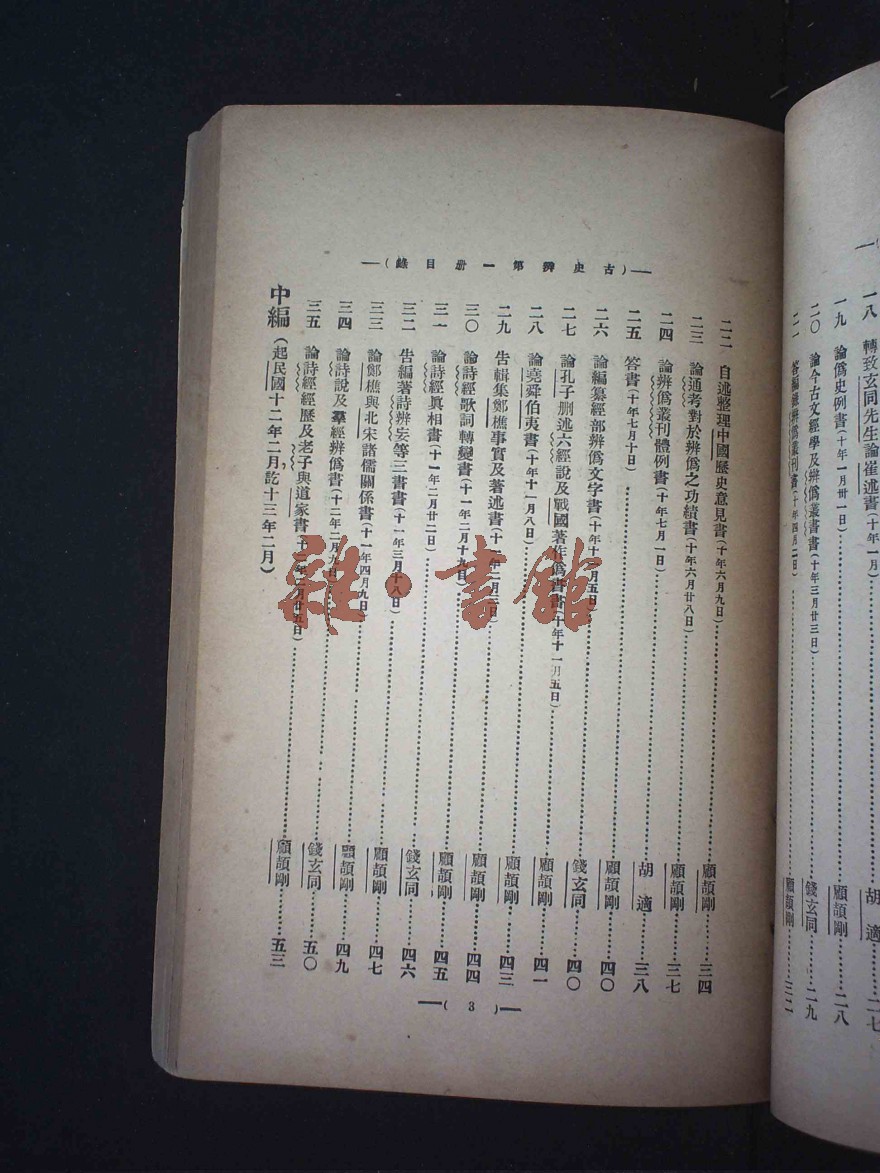 一八 轉致玄同先生論崔述書(十年一月)……胡適……二七
一九 論僞史例書(十年一月卅一日)……顧頡剛……二八
二〇 論今古文經學及辨僞叢書書(十年三月廿三日)……錢玄同……二九
二一 答編錄辨僞叢刊書(十年四月二日)……顧頡剛……三二
—(古史辨第一册目錄)—
二二 自述整理中國歷史意見書(十年六月九日)……顧頡剛……三四
二三 論通考對於辨僞之功績書(十年六月廿八日)……顧頡剛……三七
二四 論辨僞叢刊體例書(十年七月一日)……胡適……三八
二五 答書(十年七月十日)……顧頡剛……四〇
二六 論編纂經部辨僞文字書(十年十一月五日)……錢玄同……四〇
二七 論孔子删述六經說及戰國著作僞書書(十年十一月五日)……顧頡剛……四一
二八 論堯舜伯夷書(十年十一月八日)……顧頡剛……四三
二九 告輯集鄭樵事實及著述書(十一年二月二日)……顧頡剛……四四
三〇 論詩經歌詞轉變書(十一年二月十九日)……顧頡剛……四五
三一 論詩經眞相書(十一年二月廿二日)……錢玄同……四六
三二 告編著詩辨妄等三書書(十一年三月十八日)……顧頡剛……四七
三三 論鄭樵與北宋諸儒關係書(十一年四月九日)……顧頡剛……四九
三四 論詩說及羣經辨僞書(十二年二月九日)……錢玄同……五〇
三五 論詩經經歷及老子與道家書(十二年二月廿五日)……顧頡剛……五三
中編(起民國十二年二月訖十三年二月)
—(3)—
雜·書館